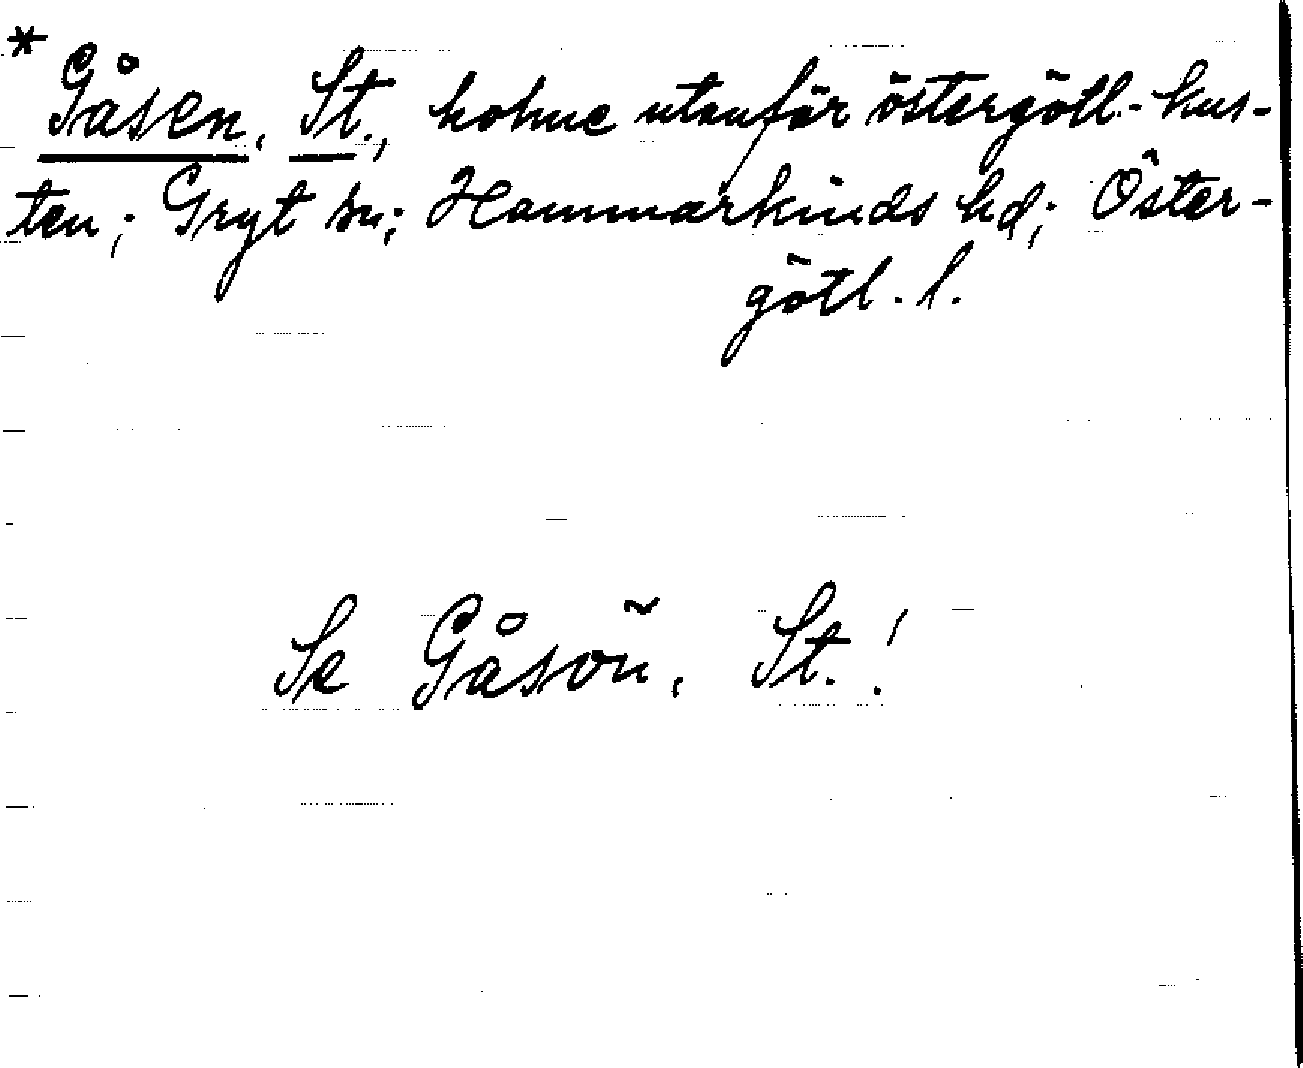 * Gåsen, St., holme utanför östergötl. kus-
ten; Gryt sn; Hammarkinds hd; Öster-
götl. l.
Se Gåsön, St.!